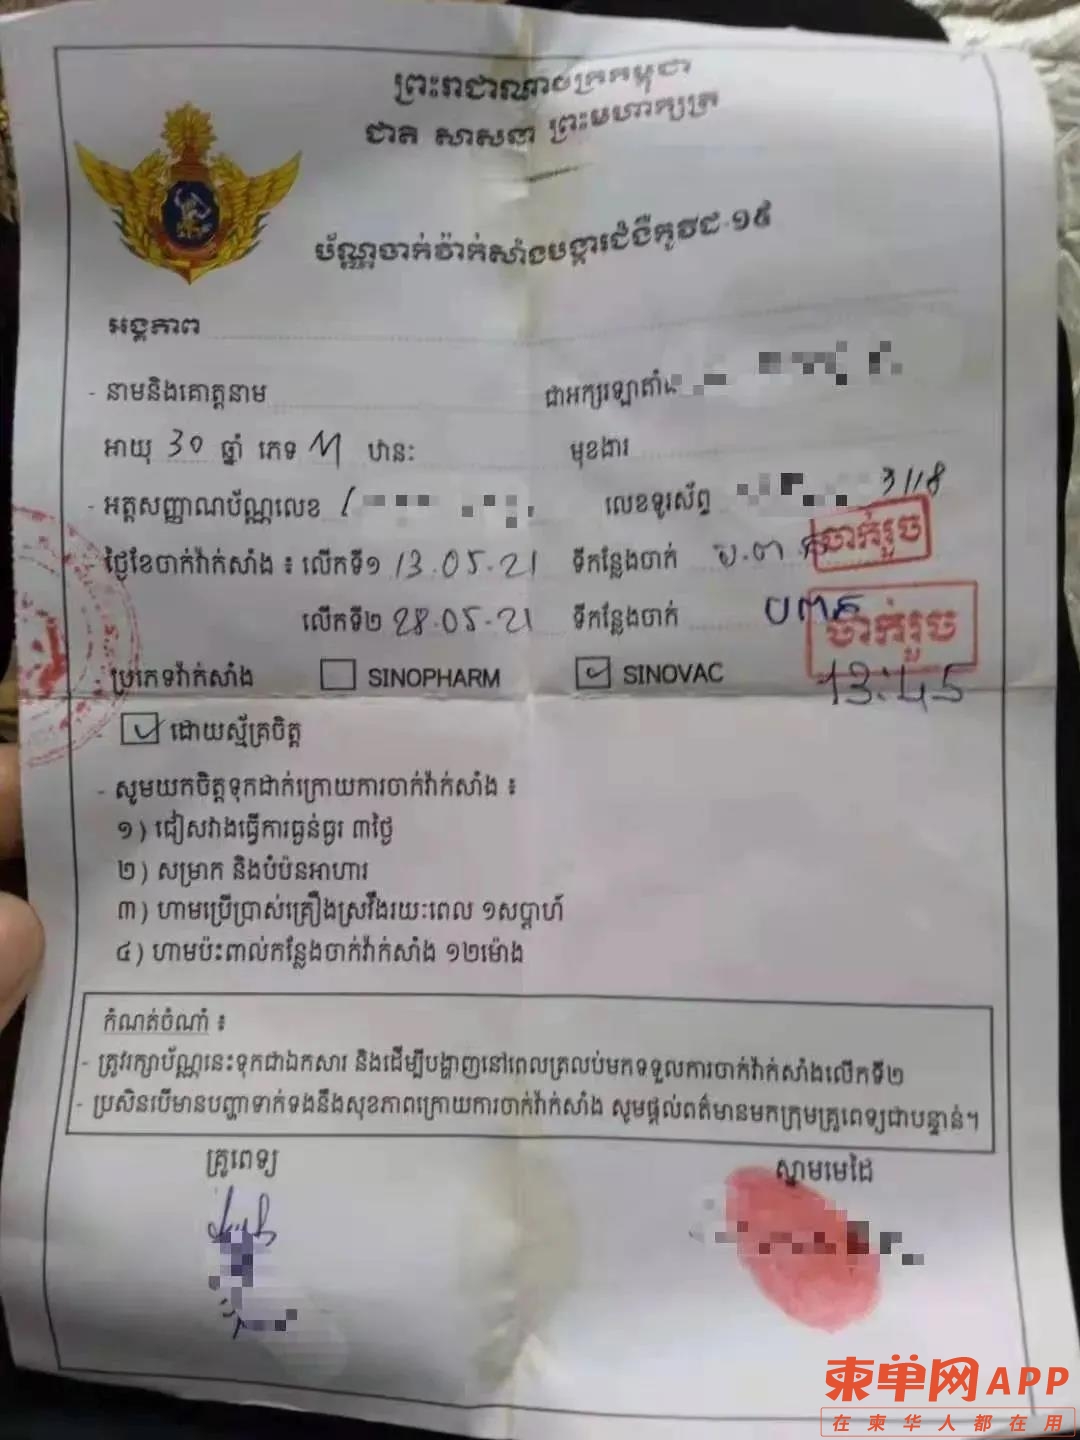 ព្រះរាជាណាចក្រកម្ពុជា
ជាតិ សាសនា ព្រះមហាក្សត្រ
ប័ណ្ណចាក់វ៉ាក់សាំងបង្ការជំងឺកូវីដ-១៩
អង្គភាព
- នាមនិងគោត្តនាម ជាអក្សរឡាតាំង
អាយុ 30 ឆ្នាំ ភេទ M ឋានៈ មុខងារ
- អត្តសញ្ញាណប័ណ្ណលេខ លេខទូរស័ព្ទ 3118
ថ្ងៃខែចាក់វ៉ាក់សាំង ៖ លើកទី១ 13.05.21 ទីកន្លែងចាក់ ចាក់រួច
លើកទី២ 28.05.21 ទីកន្លែងចាក់ ចាក់រួច
ប្រភេទវ៉ាក់សាំង SINOPHARM SINOVAC 13:45
ដោយស្ម័គ្រចិត្ត
- សូមយកចិត្តទុកដាក់ក្រោយការចាក់វ៉ាក់សាំង ៖
១) ជៀសវាងធ្វើការធ្ងន់ធ្ងរ ៣ថ្ងៃ
២) សម្រាក និងបំប៉នអាហារ
៣) ហាមប្រើប្រាស់គ្រឿងស្រវឹងរយៈពេល ១សប្តាហ៍
៤) ហាមប៉ះពាល់កន្លែងចាក់វ៉ាក់សាំង ១២ម៉ោង
កំណត់ចំណាំ ៖
- ត្រូវរក្សាប័ណ្ណនេះទុកជាឯកសារ និងដើម្បីបង្ហាញនៅពេលត្រលប់មកទទួលការចាក់វ៉ាក់សាំងលើកទី២
- ប្រសិនបើមានបញ្ហាទាក់ទងនឹងសុខភាពក្រោយការចាក់វ៉ាក់សាំង សូមផ្តល់ពត៌មានមកក្រុមគ្រូពេទ្យជាបន្ទាន់។
គ្រូពេទ្យ ស្នាមមេដៃ
柬单网APP
在柬华人都在用